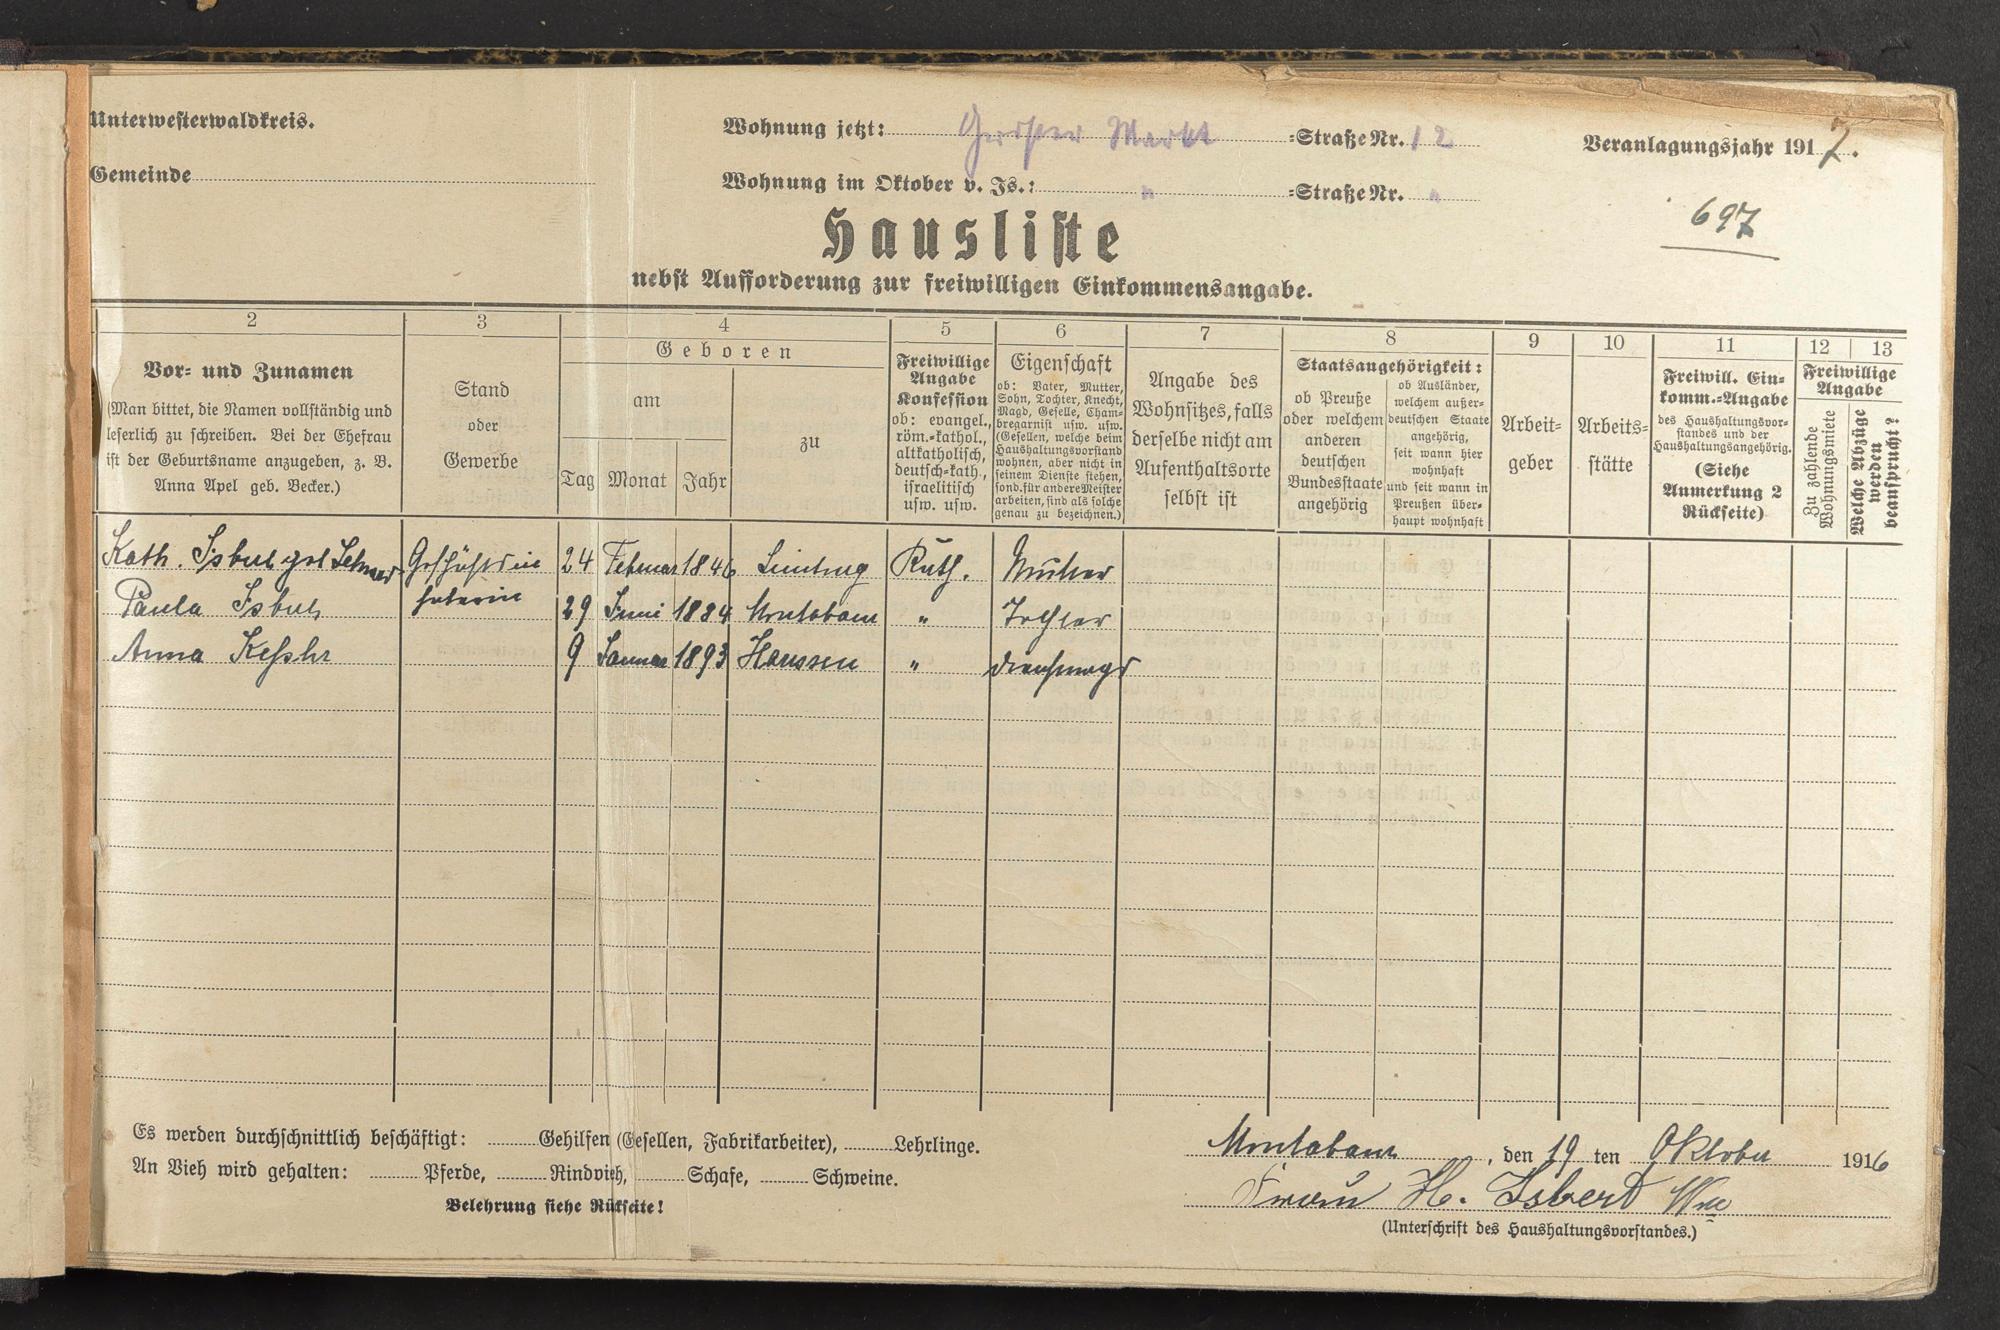 Unterwesterwaldkreis.
Wohnung jetzt: Großer Markt =Straße Nr. 12
Veranlagungsjahr 1917.
Gemeinde
Wohnung im Oktober v. Js.: " =Straße Nr. "
697
Hausliste
nebst Aufforderung zur freiwilligen Einkommensangabe.
2 3 4 5 6 7 8 9 10 11 12 13
Vor- und Zunamen
(Man bittet, die Namen vollständig und
leserlich zu schreiben. Bei der Ehefrau
ist der Geburtsname anzugeben, z. B.
Anna Apel geb. Becker.)
Stand
oder
Gewerbe
Geboren
am
Tag Monat Jahr
zu
Freiwillige
Angabe
Konfession
ob: evangel.,
röm.-kathol.,
altkatholisch,
deutsch-kath.,
israelitisch
usw. usw.
Eigenschaft
ob: Vater, Mutter,
Sohn, Tochter, Knecht,
Magd, Geselle, Cham-
bregarnist usw. usw.
(Gesellen, welche beim
Haushaltungsvorstand
wohnen, aber nicht in
seinem Dienste stehen,
sond. für andere Meister
arbeiten, sind als solche
genau zu bezeichnen.)
Angabe des
Wohnsitzes, falls
derselbe nicht am
Aufenthaltsorte
selbst ist
Staatsangehörigkeit:
ob Preuße
oder welchem
anderen
deutschen
Bundesstaate
angehörig
ob Ausländer,
welchem außer-
deutschen Staate
angehörig,
seit wann hier
wohnhaft
und seit wann in
Preußen über-
haupt wohnhaft
Arbeit-
geber
Arbeits-
stätte
Freiwill. Ein-
komm.-Angabe
des Haushaltungsvor-
standes und der
Haushaltungsangehörig.
(Siehe
Anmerkung 2
Rückseite)
Freiwillige
Angabe
Zu zahlende
Wohnungsmiete
Welche Abzüge
werden
beansprucht?
Kath. Isbert geb 24 Februar 1846 Kath. Mutter
Paula Isbert 29 Juni 1884 Montabaur " Tochter
Anna Keßler 9 Januar 1893 Haussen " Dienstmagd
Es werden durchschnittlich beschäftigt: Gehilfen (Gesellen, Fabrikarbeiter), Lehrlinge.
An Vieh wird gehalten: Pferde, Rindvieh, Schafe, Schweine.
Belehrung siehe Rückseite!
Montabaur, den 19 ten Oktober 1916
Frau H. Isbert Wwe
(Unterschrift des Haushaltungsvorstandes.)